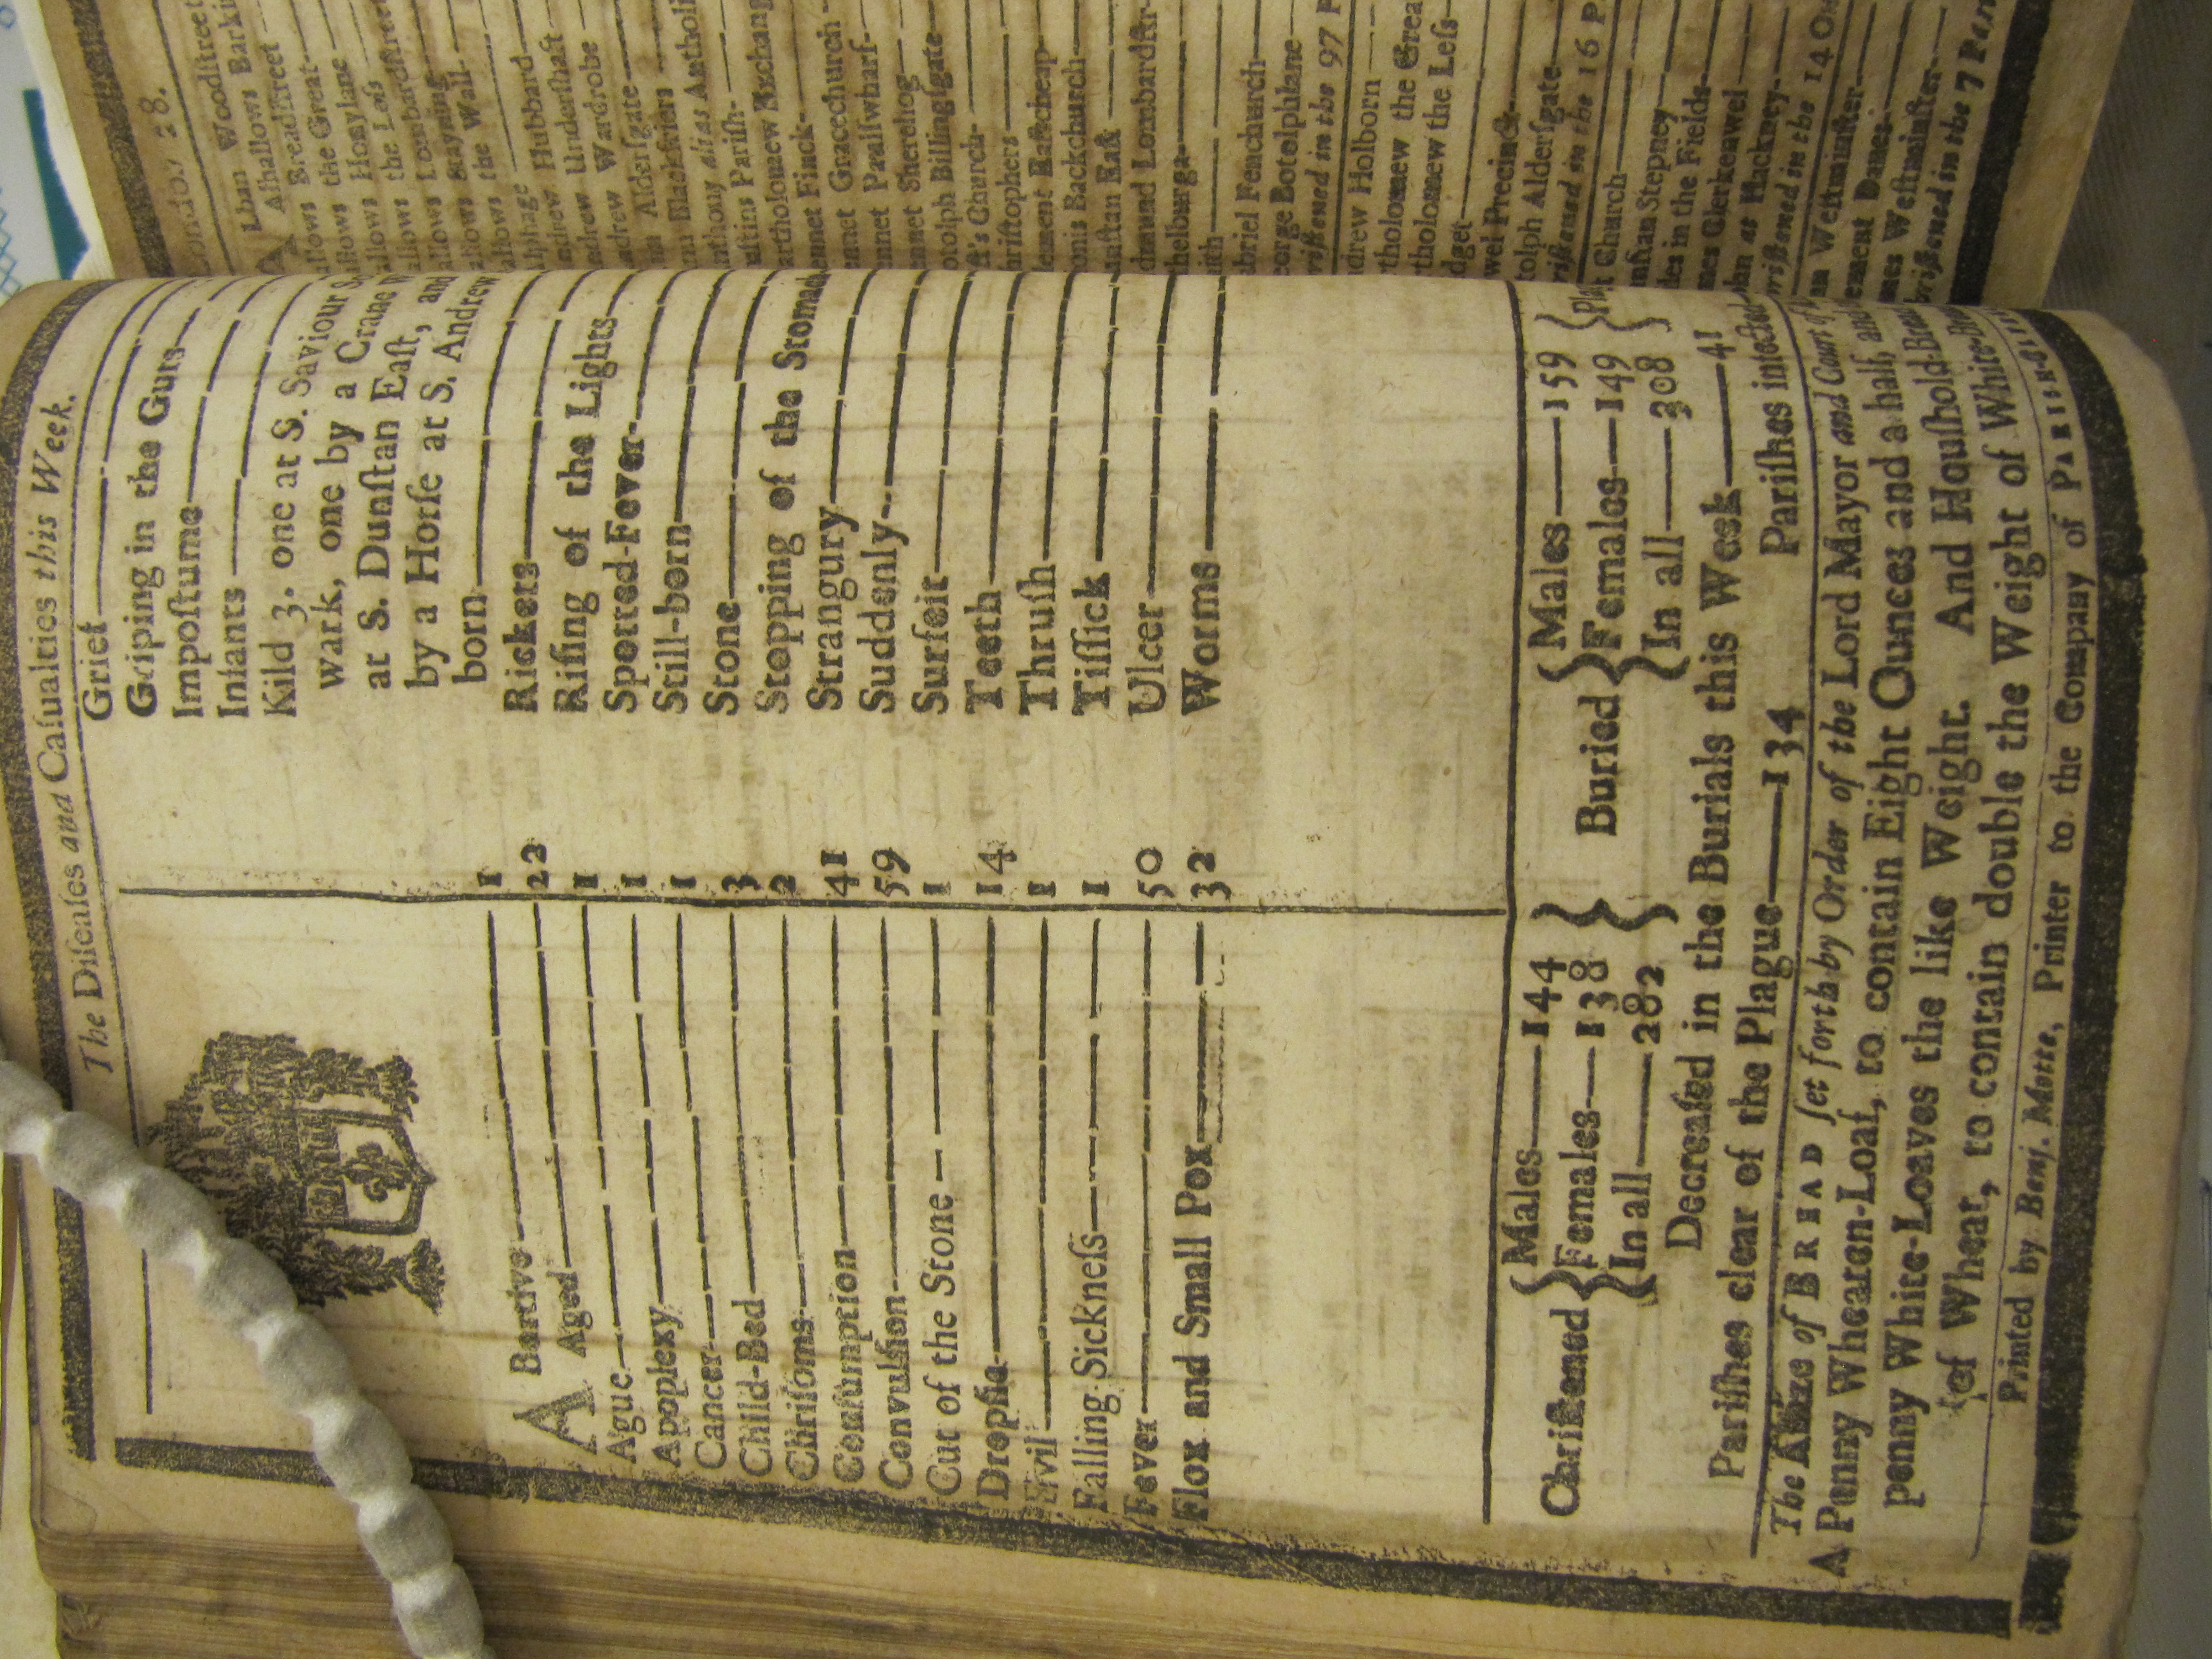 The Diſeaſes and Caſualties this Week.
ABortive 1
Aged 22
Ague 1
Apoplexy 1
Cancer 1
Child-Bed 3
Chriſoms 2
Conſumption 41
Convulſion 59
Cut of the Stone 1
Dropſie 14
Evil 1
Falling Sickneſs 1
Fever 50
Flox and Small Pox 32
Grief
Griping in the Guts
Impoſtume
Infants
Kild 3. one at S. Saviour S
wark, one by a Crane
at S. Dunſtan Eaſt, and
by a Horſe at S. Andrew
born
Rickets
Riſing of the Lights
Spotted-Fever
Still-born
Stone
Stopping of the Stomach
Strangury
Suddenly
Surfeit
Teeth
Thruſh
Tiſſick
Ulcer
Worms
Chriſtened { Males 144 Females 138 In all 282 }
Buried { Males 159 Females 149 In all 308 } Pla
Decreaſed in the Burials this Week 41
Pariſhes clear of the Plague 134 Pariſhes infected
The Aſſize of BREAD ſet forth by Order of the Lord Mayor and Court of
A Penny Wheaten-Loaf, to contain Eight Ounces and a half, and
penny White-Loaves the like Weight. And Houſhold-Bread
of Wheat, to contain double the Weight of White-Bre
Printed by Benj. Motte, Printer to the Company of PARISH-
28.
lban Woodſtreet
A Alhallows Barki
allows Breadſtreet
allows the Great
allows Honylane
allows the Leſs
allows Lombardſtreet
allows Stayning
allows the Wall
lphage
ndrew Hubbard
ndrew Underſhaft
ndrew Wardrobe
Alderſgate
Blackfriers
nthony alias Antholi
uſtins Pariſh
artholomew Exchang
ennet Finck
ennet Gracechurch
ennet Paulſwharf
ennet Sherehog
otolph Billingſgate
Church
hriſtophers
lement Eaſtcheap
onis Backchurch
unſtan Eaſt
dmund Lombardſtr
thelburga
aith
abriel Fenchurch
eorge Botolphlane
riſtened in the 97 P
drew Holborn
rtholomew the Grea
rtholomew the Leſs
idget
wel Precinct
tolph Alderſgate
riſtened in the 16 P
t Church
nſtan Stepney
les in the Fields
mes Clerkenwel
ohn at Hackney
riſtened in the 140
Weſtminſter
ement Danes
mes Weſtminſter
riſtened in the 7 Pari